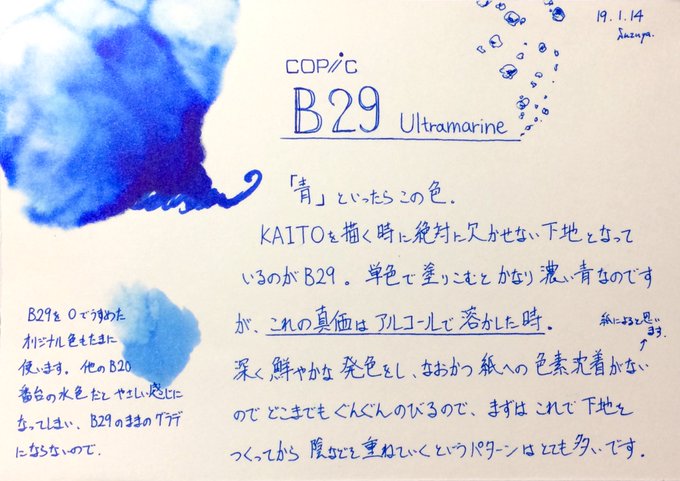 19.1.14
Suzuya.
COPiC
B29 Ultramarine
「青」といったらこの色.
KAITOを描く時に絶対に欠かせない下地となって
いるのがB29。単色で塗りこむとかなり濃い青なのです
が、これの真価はアルコールで溶かした時。
紙によると思い
ます。
深く鮮やかな発色をし、なおかつ紙への色素沈着がない
のでどこまでもぐんぐんのびるので、まずはこれで下地を
つくってから陰などを重ねていくというパターンはとても多いです。
B29を0でうすめた
オリジナル色もたまに
使います。他のB20
番台の水色だとやさしい感じに
なってしまい、B29のままのグラデ
にならないので.